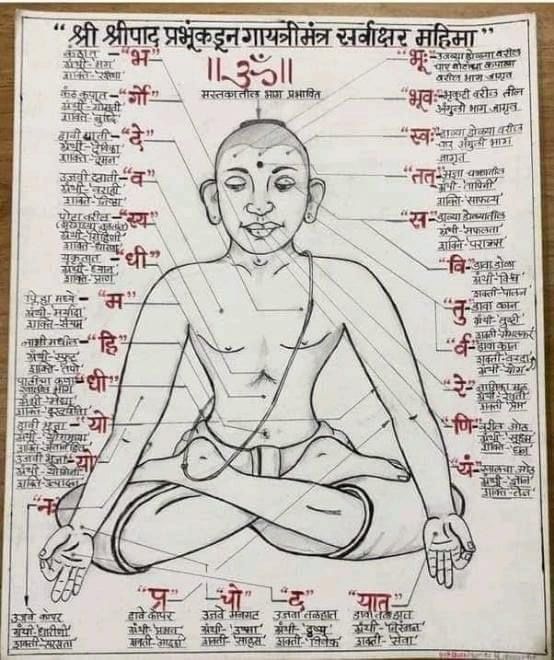 "श्री श्रीपाद प्रभूंकडून गायत्री मंत्र सर्वाक्षर महिमा"
॥ॐ॥
मस्तकातील भाग प्रभावित
"भ"
कंठात
ग्रंथी-भग
शक्ति-रक्षणा
"र्गो"
कंठ कूपात
ग्रंथी-गोमती
शक्ति-बुद्धि
"दे"
डावी छाती
ग्रंथी-देविका
शक्ति-दमन
"व"
उजवी छाती
ग्रंथी-वराही
शक्ति-निष्ठा
"स्य"
पोटा वरील
शक्ति-धारणा
"धी"
यकृतात
ग्रंथी-ध्यान
शक्ति-प्राण
"म"
ग्रंथी-मर्यादा
शक्ति-संयम
"हि"
नाभी मधील
ग्रंथी-स्फूट
शक्ति-तपो
"धी"
ग्रंथी-मेधा
"यो"
डावी भुजा
"यो"
उजवी भुजा
ग्रंथी-योगिनी
शक्ति-उत्पादन
"नः"
उजवे कोपर
ग्रंथी-धारीणी
शक्ती-सरसता
भूः-उजव्या डोळ्या वरील
चार बोटांच्या कपाळा
वरील भाग जागृत
भुवः-भृकुटी वरील तीन
अंगुली भाग जागृत
स्वः-डाव्या डोळ्या वरील
चार अंगुली भाग
जागृत
तत्-आज्ञा चक्रातील
ग्रंथी-तापिनी
शक्ति-साफल्य
स-डाव्या डोळ्यातील
ग्रंथी-सफलता
शक्ति-पराक्रम
वि-डावा डोळा
ग्रंथी-विश्व
शक्ती-पालन
तु-डावा कान
ग्रंथी-तुष्टी
र्व-
शक्ती-वरदा
ग्रंथी-योग
रे-नासिका मूळ
ग्रंथी-रेवती
शक्ती-प्रेम
णि-वरील ओठ
ग्रंथी-सूक्ष्म
यं-खालचा ओठ
ग्रंथी-ज्ञान
शक्ति-तेज
"प्र"
डावे कोपर
ग्रंथी-प्रभव
शक्ती-आदर्श
"चो"
उजवे मनगट
ग्रंथी-उष्मा
शक्ती-साहस
"द"
उजवा तळहात
ग्रंथी-दृष्य
शक्ती-विवेक
"यात्"
डावा तळहात
ग्रंथी-निरंजन
शक्ती-सेवा